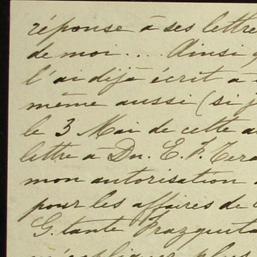 réponse à ses lettre
de moi... Ainsi q
l'ai déjà écrit à
même aussi (si j
le 3 Mai de cette a
lettre à Dn. E. F. Tera
mon autorisation
pour les affaires de
G. tante Frazquita
plus